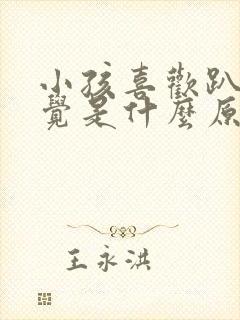 小孩喜歡趴
覺是什麼原
王永洪